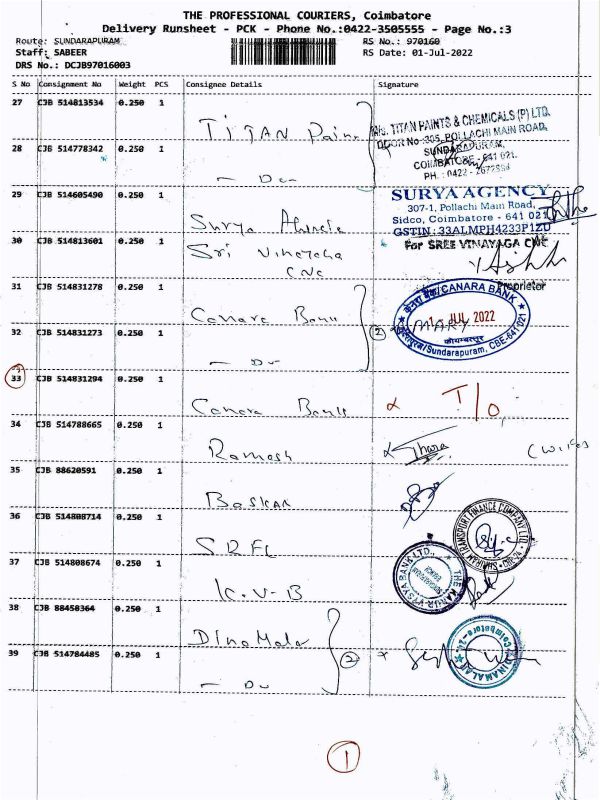 THE PROFESSIONAL COURIERS, Coimbatore
Delivery Runsheet - PCK - Phone No.:0422-3505555 - Page No.:3
Route: SUNDARAPURAM
RS No.: 970160
Staff: SABEER
RS Date: 01-Jul-2022
DRS No.: DCJB97016003
S No Consignment No Weight PCS Consignee Details Signature
27 CJB 514813534 0.250 1
TITAN Pain
M/s. TITAN PAINTS & CHEMICALS (P) LTD.
DOOR No :305, POLLACHI MAIN ROAD,
SUNDARAPURAM,
COIMBATORE - 641 021.
PH. : 0422 -
28 CJB 514778342 0.250 1
— Do
29 CJB 514605490 0.250 1
Surya
SURYA AGENCY
307-1, Pollachi Main Road,
Sidco, Coimbatore - 641 021
GSTIN : 33ALMPH4233P1ZU
30 CJB 514813601 0.250 1
Sri Vinayaka
CNC
For SREE VINAYAGA CNC
Proprietor
31 CJB 514831278 0.250 1
Canara Bank
केनरा बैंक/CANARA BANK
1 JUL 2022
MARY
कोयम्बत्तूर
/Sundarapuram, CBE-641021
32 CJB 514831273 0.250 1
— Do
2
33 CJB 514831294 0.250 1
Canara Bank
T/O
34 CJB 514788665 0.250 1
Ramesh
(Wife)
35 CJB 88620591 0.250 1
Baskar
36 CJB 514808714 0.250 1
SRFL
SHRIRAM TRANSPORT FINANCE COMPANY LTD.
37 CJB 514808674 0.250 1
K.V-B
THE KARUR VYSYA BANK LTD.,
38 CJB 88450364 0.250 1
DinaMalar
DINAMALAR
Coimbatore-24
39 CJB 514784485 0.250 1
— Do
2
1